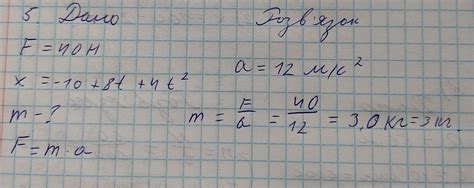 5. Дано
Розв'язок
F = 40 Н
x = -10 + 8t + 4t²
a = 12 м/с²
m - ?
m = F/a = 40/12 = 3,0 кг = 3 кг.
F = m · a